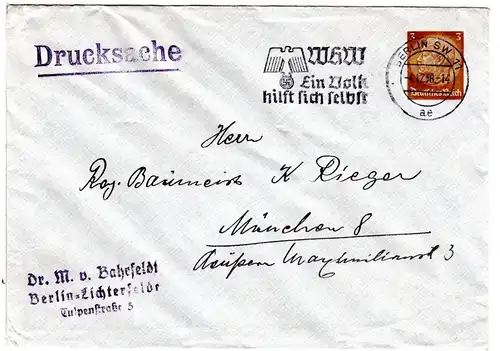 Drucksache
WHW
Ein Volk
hilft sich selbst
3 3
Deutsches Reich
BERLIN SW 11
.12.38.-14
ae
Herrn
Reg. Baumeist K Rieger
München 8
Äußere Maximilianst 3
Dr. M. v. Bahrfeldt
Berlin=Lichterfelde
Tulpenstraße 5